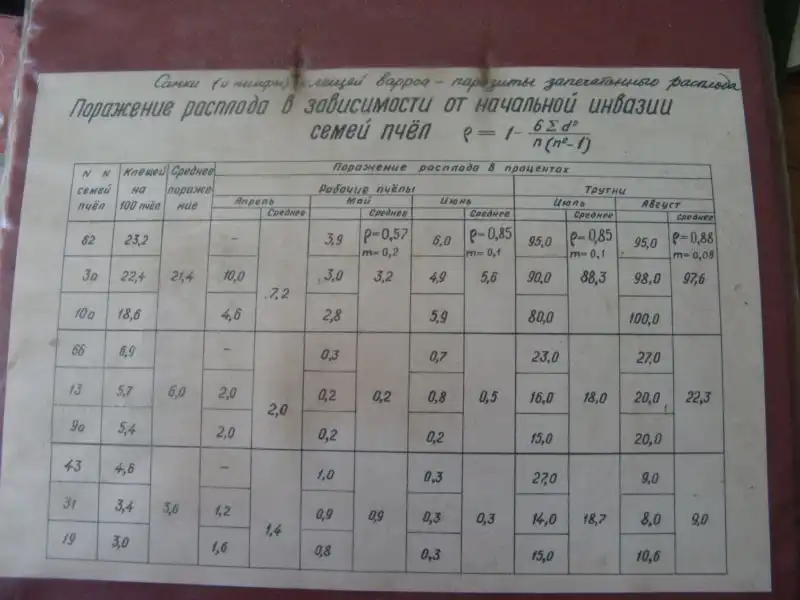 Самки (и нимфы) клещей варроа – паразиты запечатанного расплода
Поражение расплода в зависимости от начальной инвазии
семей пчёл ρ = 1- 6 Σ d² / n (n²-1)
N N семей пчёл | Клещей на 100 пчёл | Среднее поражение | Поражение расплода в процентах
Рабочие пчёлы | Трутни
Апрель | Май | Июнь | Июль | Август
Среднее | Среднее | Среднее | Среднее | Среднее
82 23,2 – 3,9 ρ=0,57 m=0,2 6,0 ρ=0,85 m=0,1 95,0 ρ=0,85 m=0,1 95,0 ρ=0,88 m=0,08
3а 22,4 21,4 10,0 7,2 3,0 3,2 4,9 5,6 90,0 88,3 98,0 97,6
10а 18,6 4,6 2,8 5,9 80,0 100,0
66 6,9 – 0,3 0,7 23,0 27,0
13 5,7 6,0 2,0 2,0 0,2 0,2 0,8 0,5 16,0 18,0 20,0 22,3
9а 5,4 2,0 0,2 0,2 15,0 20,0
43 4,6 – 1,0 0,3 27,0 9,0
31 3,4 3,6 1,2 1,4 0,9 0,9 0,3 0,3 14,0 18,7 8,0 9,0
19 3,0 1,6 0,8 0,3 15,0 10,6